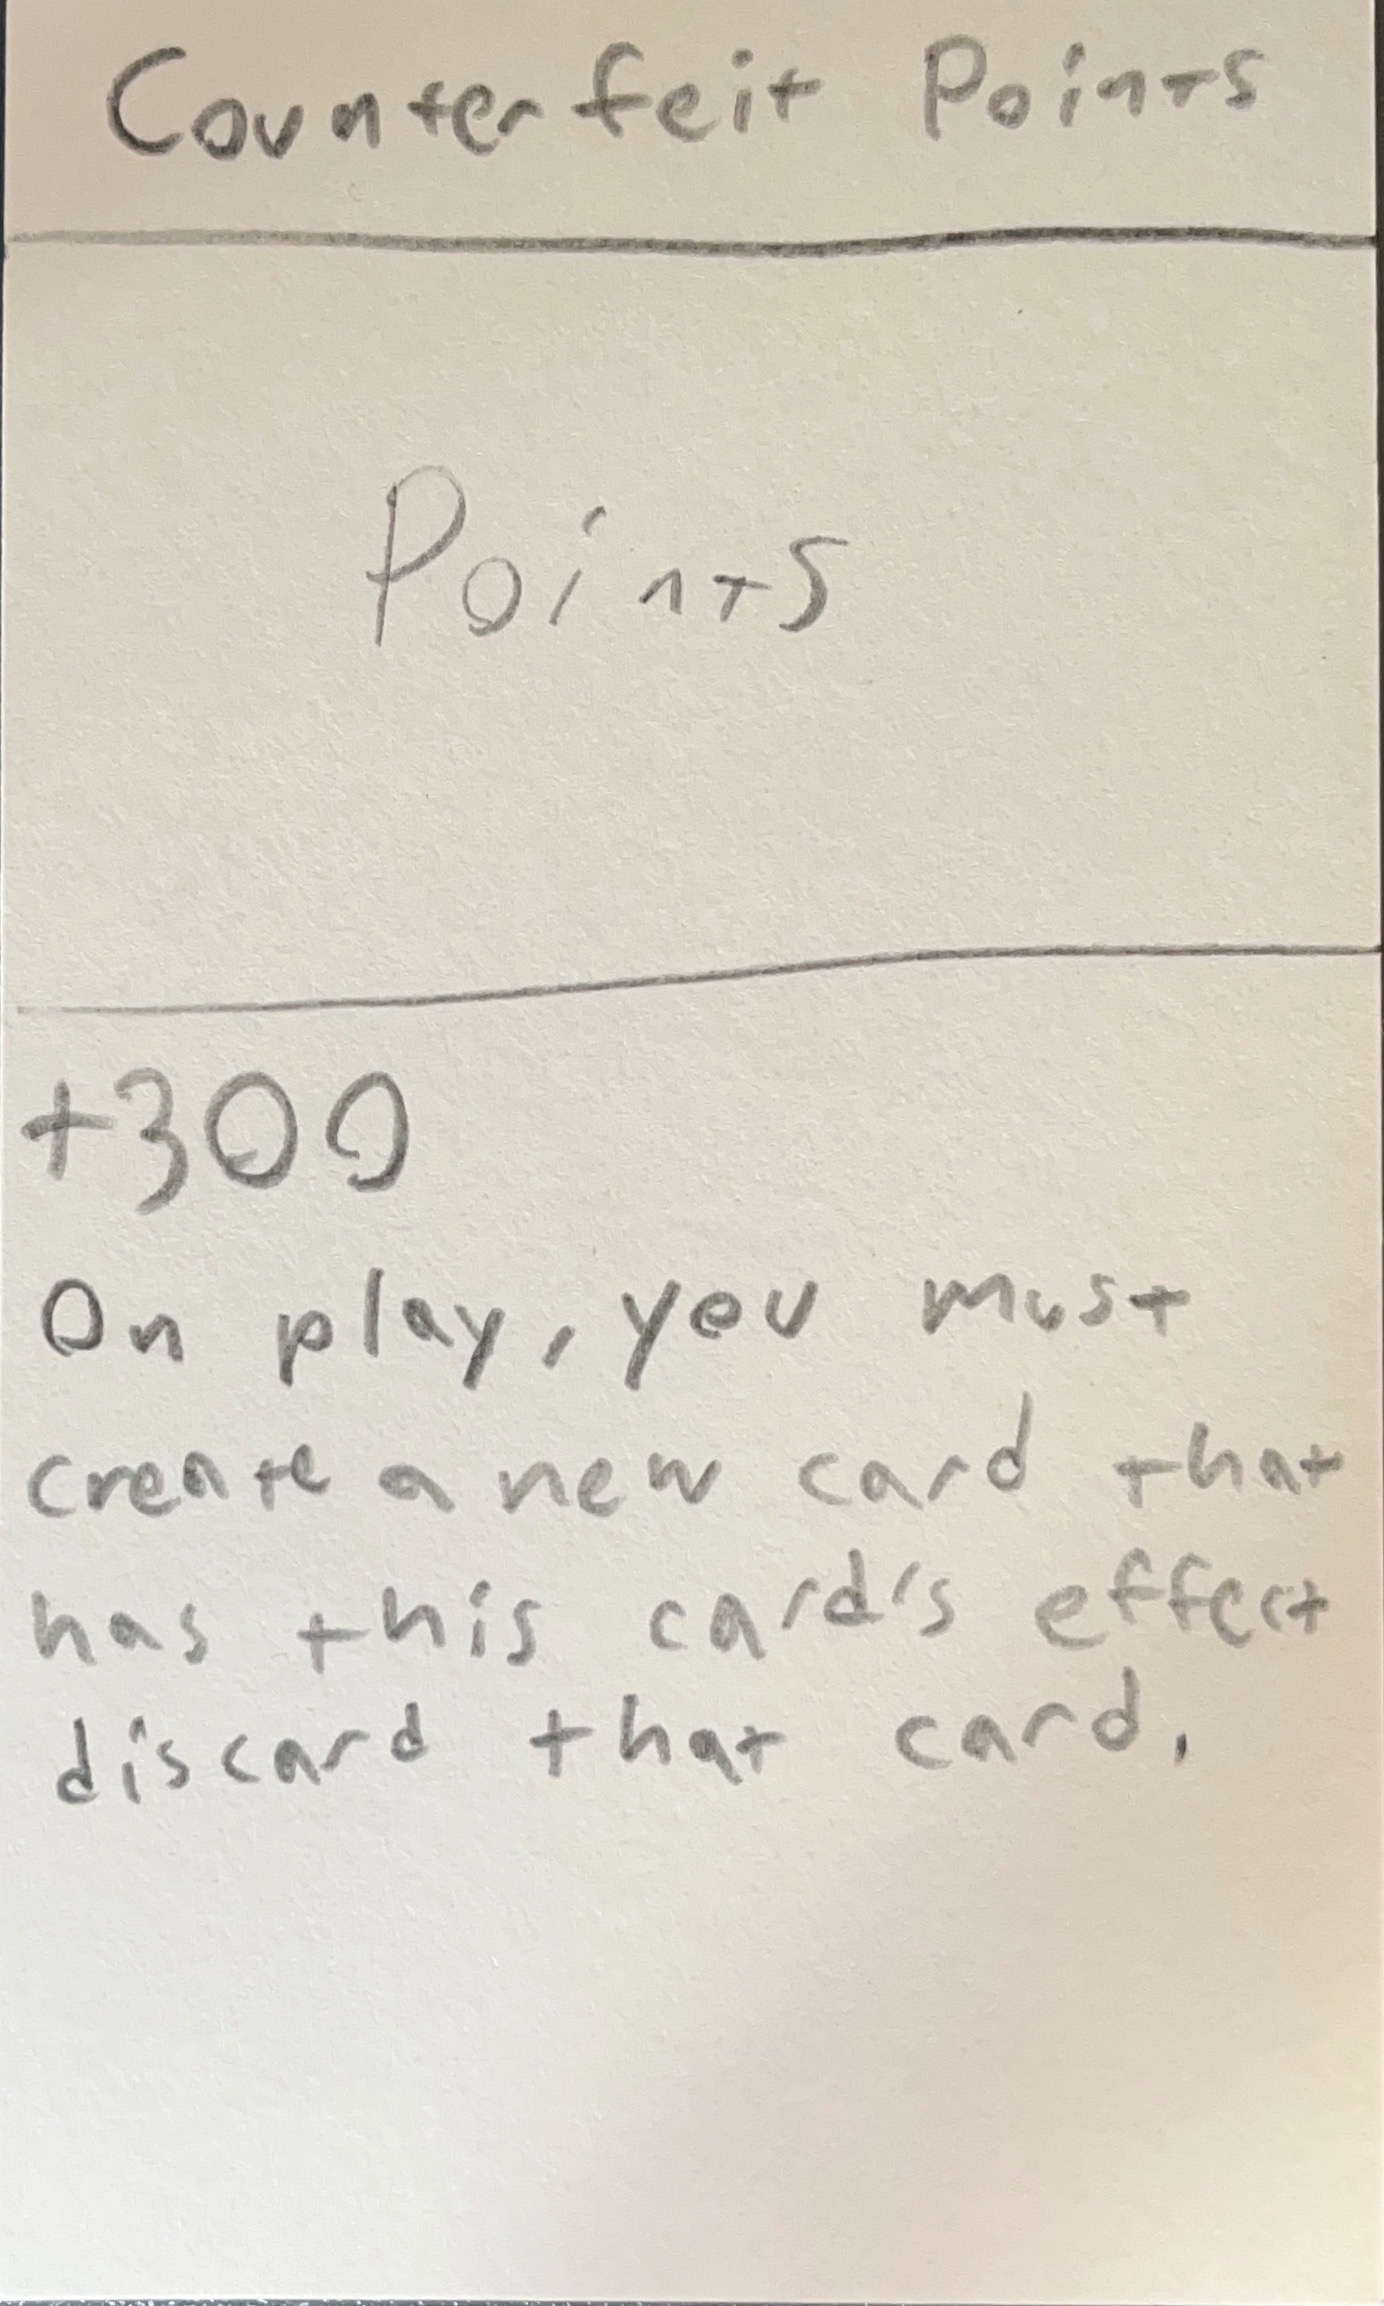 Counterfeit Points
Points
+300
On play, you must
create a new card that
has this card's effect
discard that card.